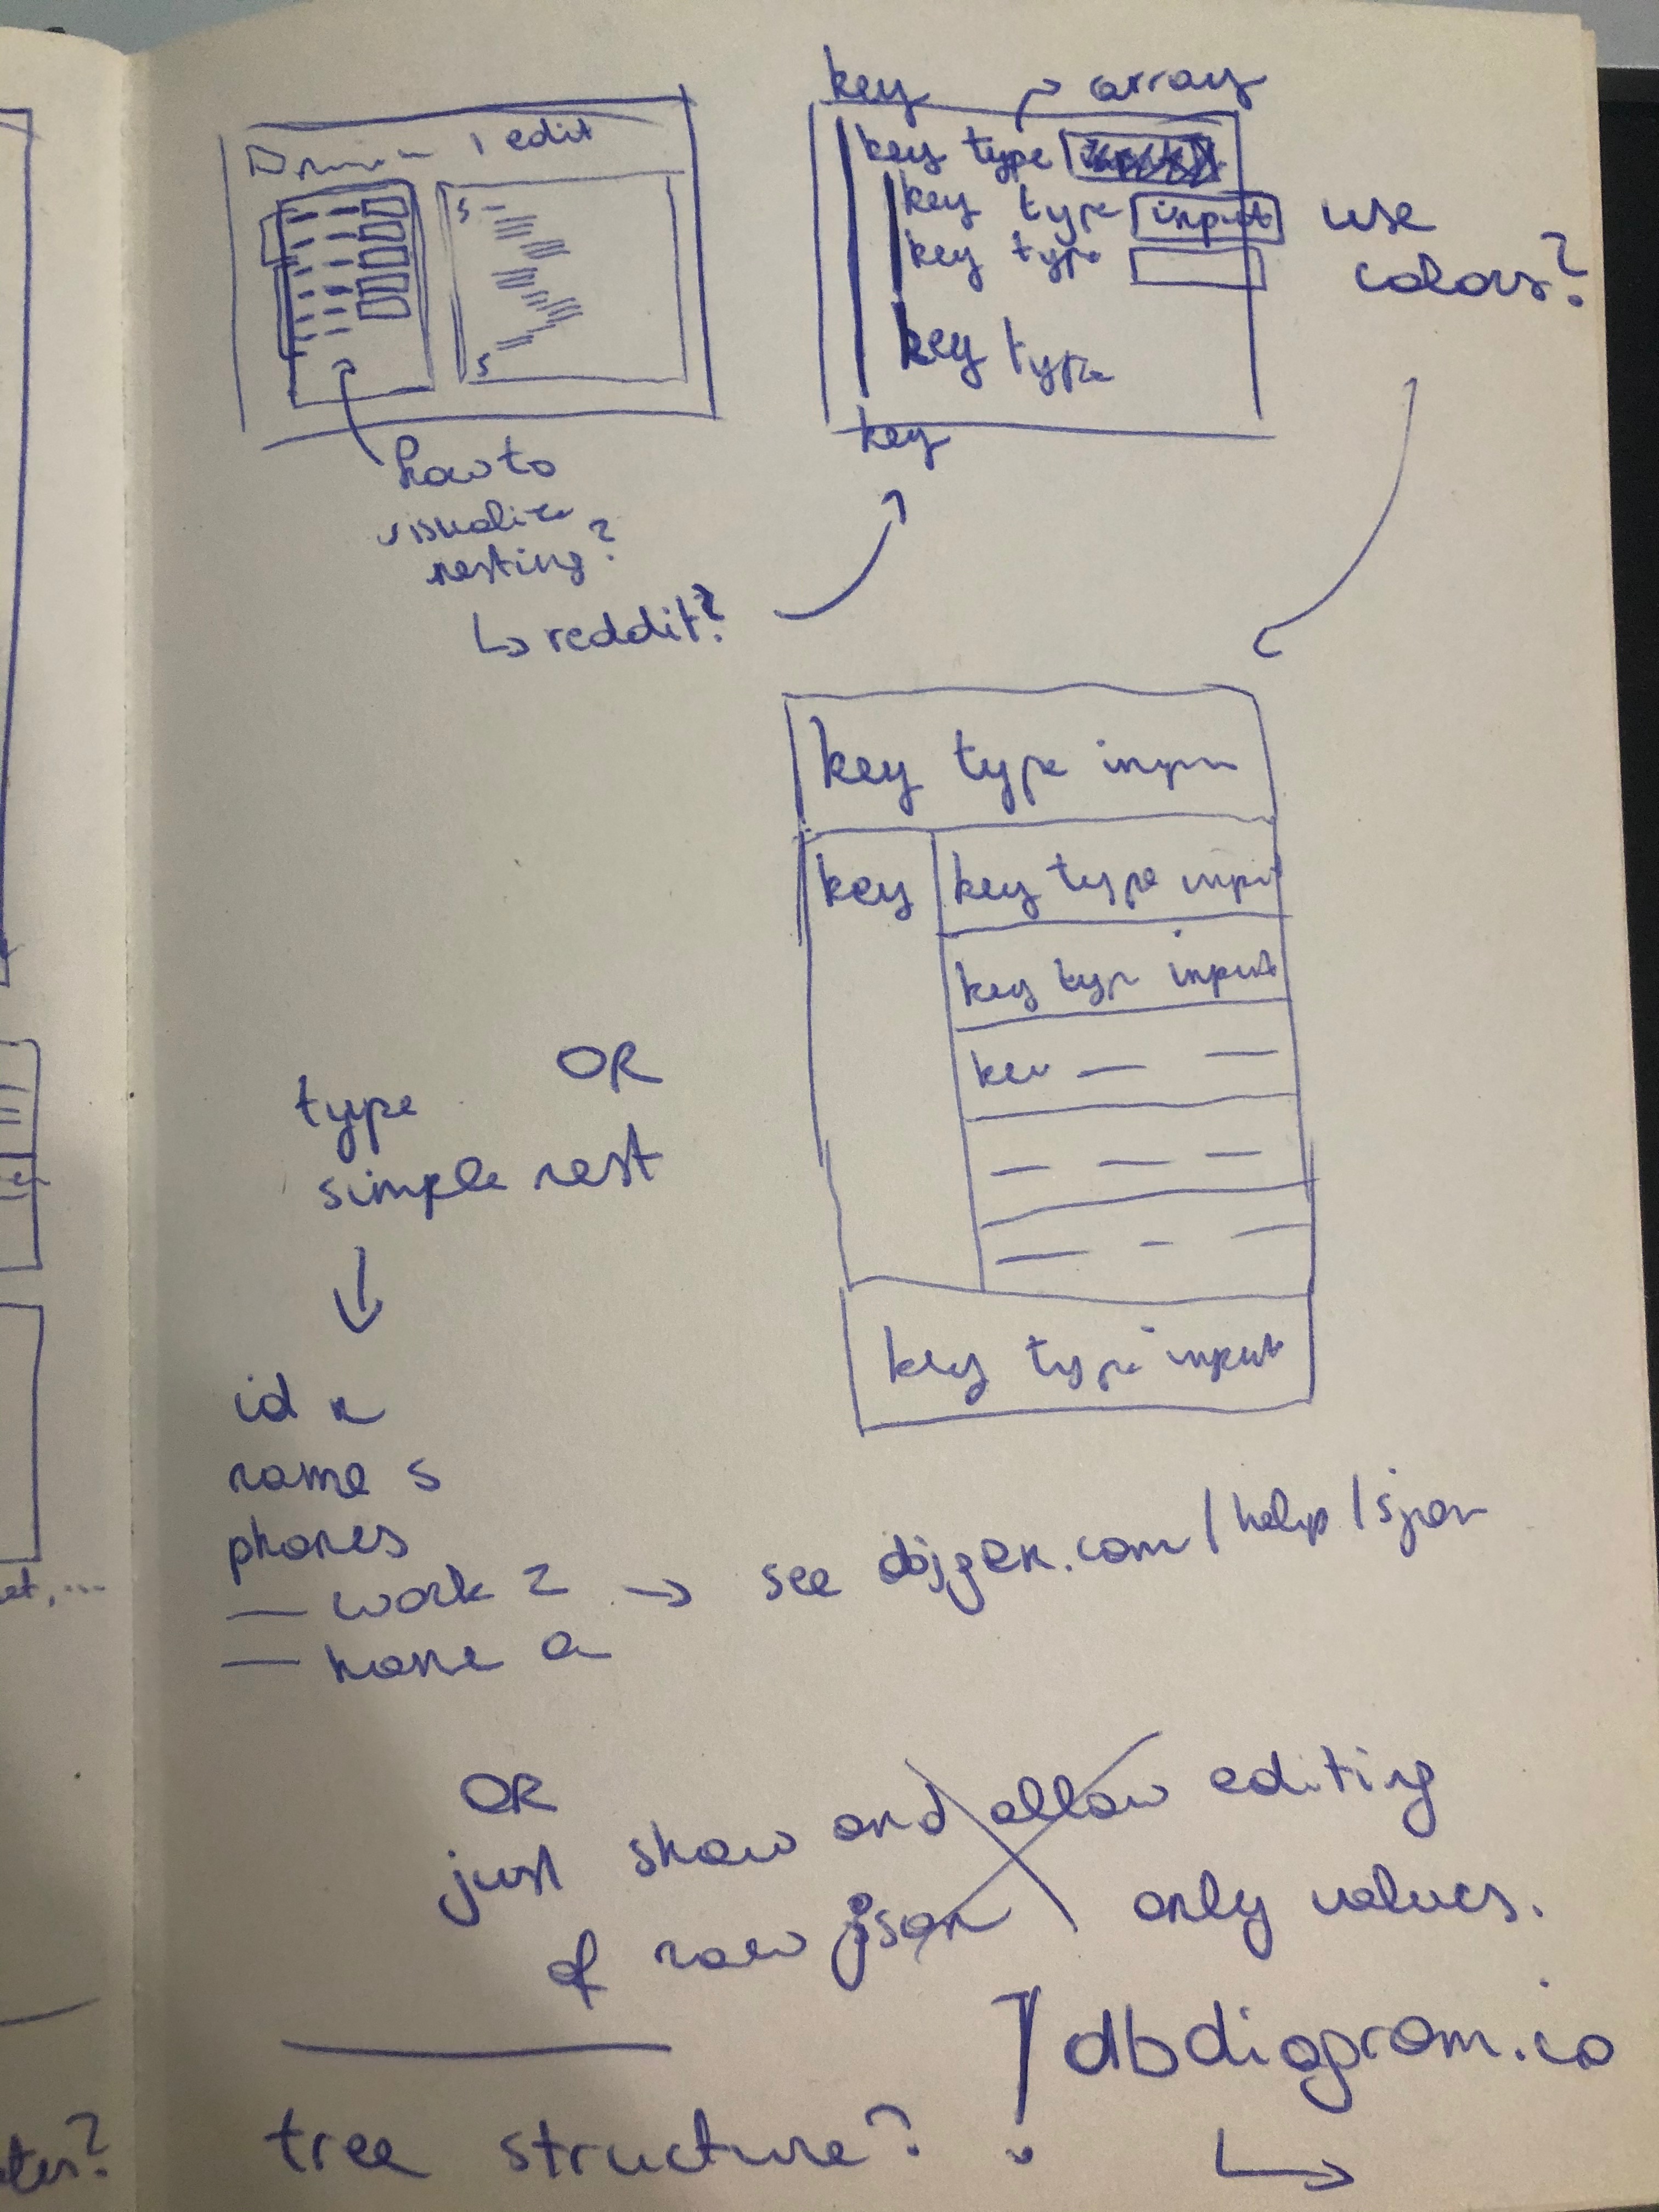 edit
how to
visualize
nesting?
↳ reddit?
key
array
key type
key type input
key type
key type
key
use
colors?
key type
key
key type input
key type input
key type input
OR
type
simple rest
id n
name s
phones
— work 2 → see objgen.com/help/json
— home a
OR
just show and allow editing
of raw json only values.
tree structure?
! dbdiagram.io